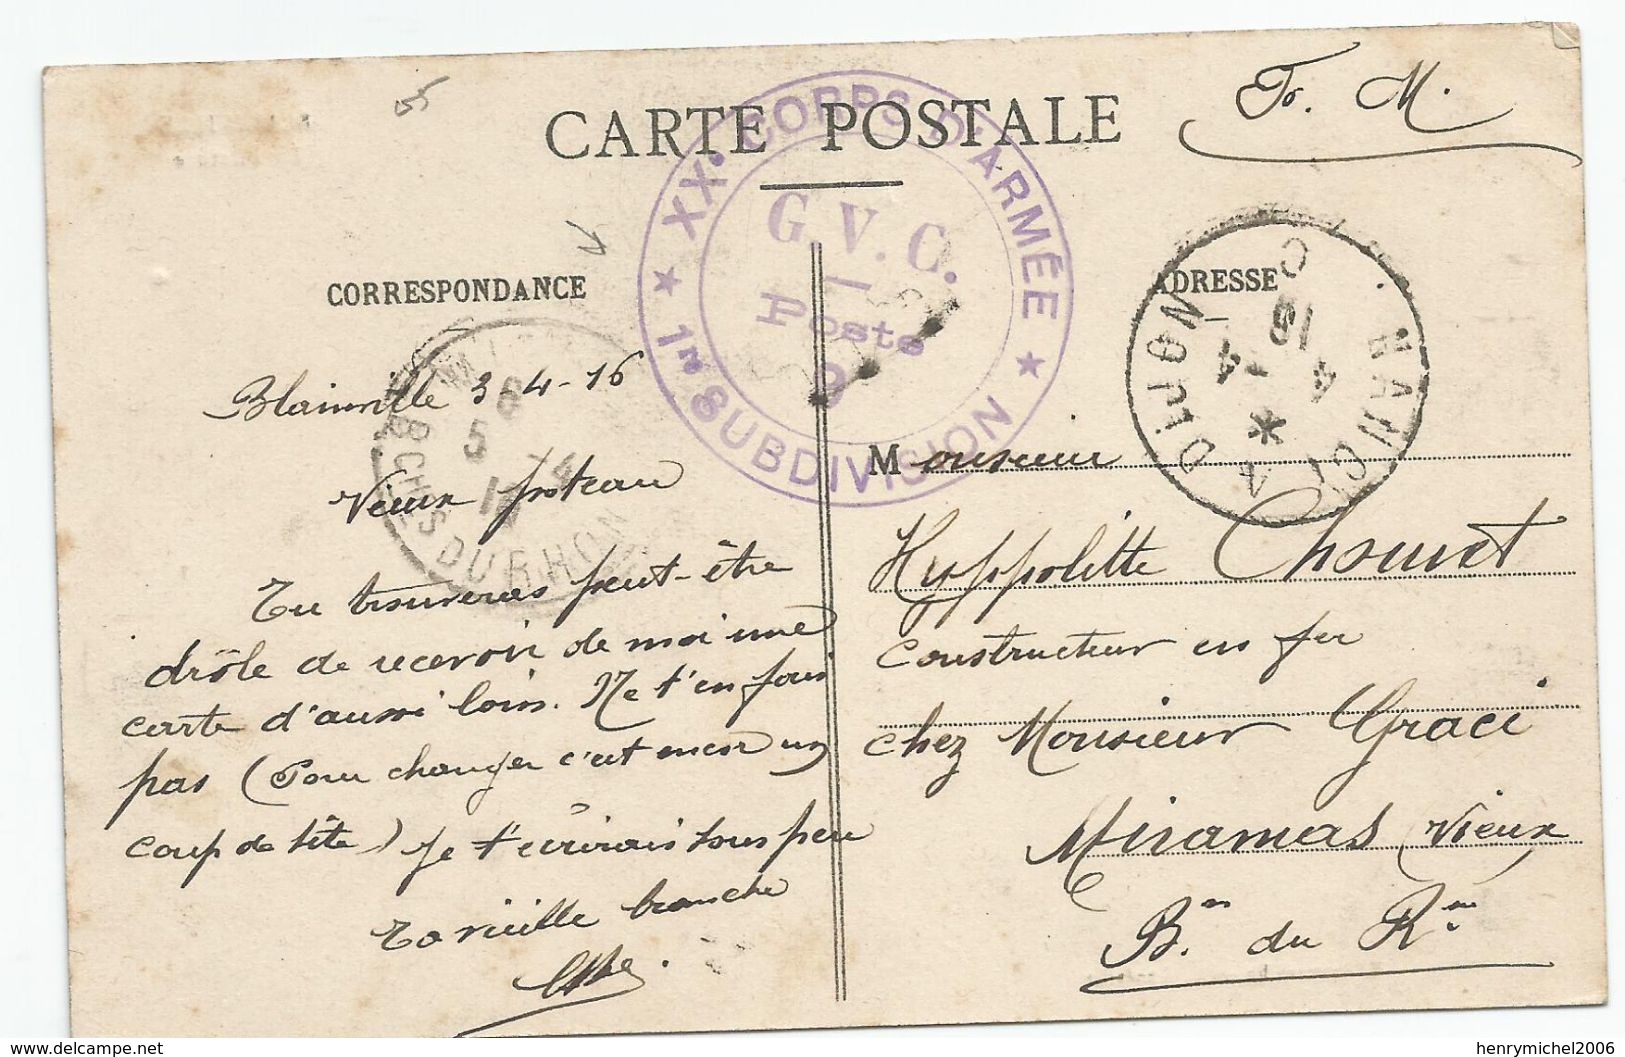 Fr. M.
CARTE POSTALE
XXe CORPS D'ARMÉE
G.V.C.
Poste
9
1re SUBDIVISION
CORRESPONDANCE
ADRESSE
NANCY A DIJON
4 - 4
16
6
5 -4
16
BCHES DU RHONE
Blainville 3-4-16
Vieux poteau
Tu trouveras peut-être
drôle de recevoir de moi une
carte d'aussi loin. Ne t'en fais
pas (Pour changer c'est encor un
coup de tête) Je t'écrirais sous peu
Ta vieille branche
Monsieur
Hyppolitte Chouvet
Constructeur en fer
chez Monsieur Graci
Miramas Vieux
B. du R.
www.delcampe.net
henrymichel2006